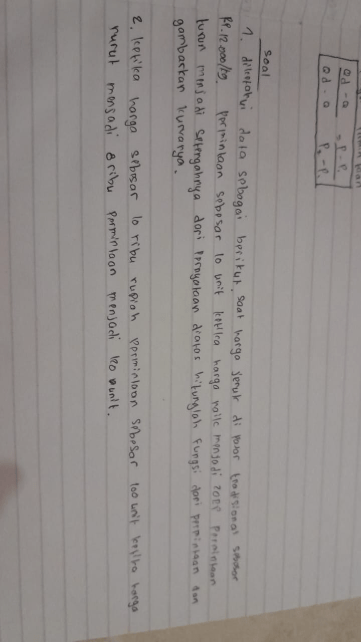 Qd - Q = P - P₁
Qd - Q P₂ - P₁
Soal
1. diketahui data sebagai berikut. saat harga jeruk di pasar tradisional sebesar
Rp. 12.000/kg. permintaan sebesar 10 unit ketika harga naik menjadi permintaan
turun menjadi setengahnya dari pernyataan diatas hitunglah fungsi dari permintaan dan
gambarkan kurvanya.
2. ketika harga sebesar 10 ribu rupiah permintaan sebesar 100 unit ketika harga
turun menjadi 8 ribu permintaan menjadi 120 unit.